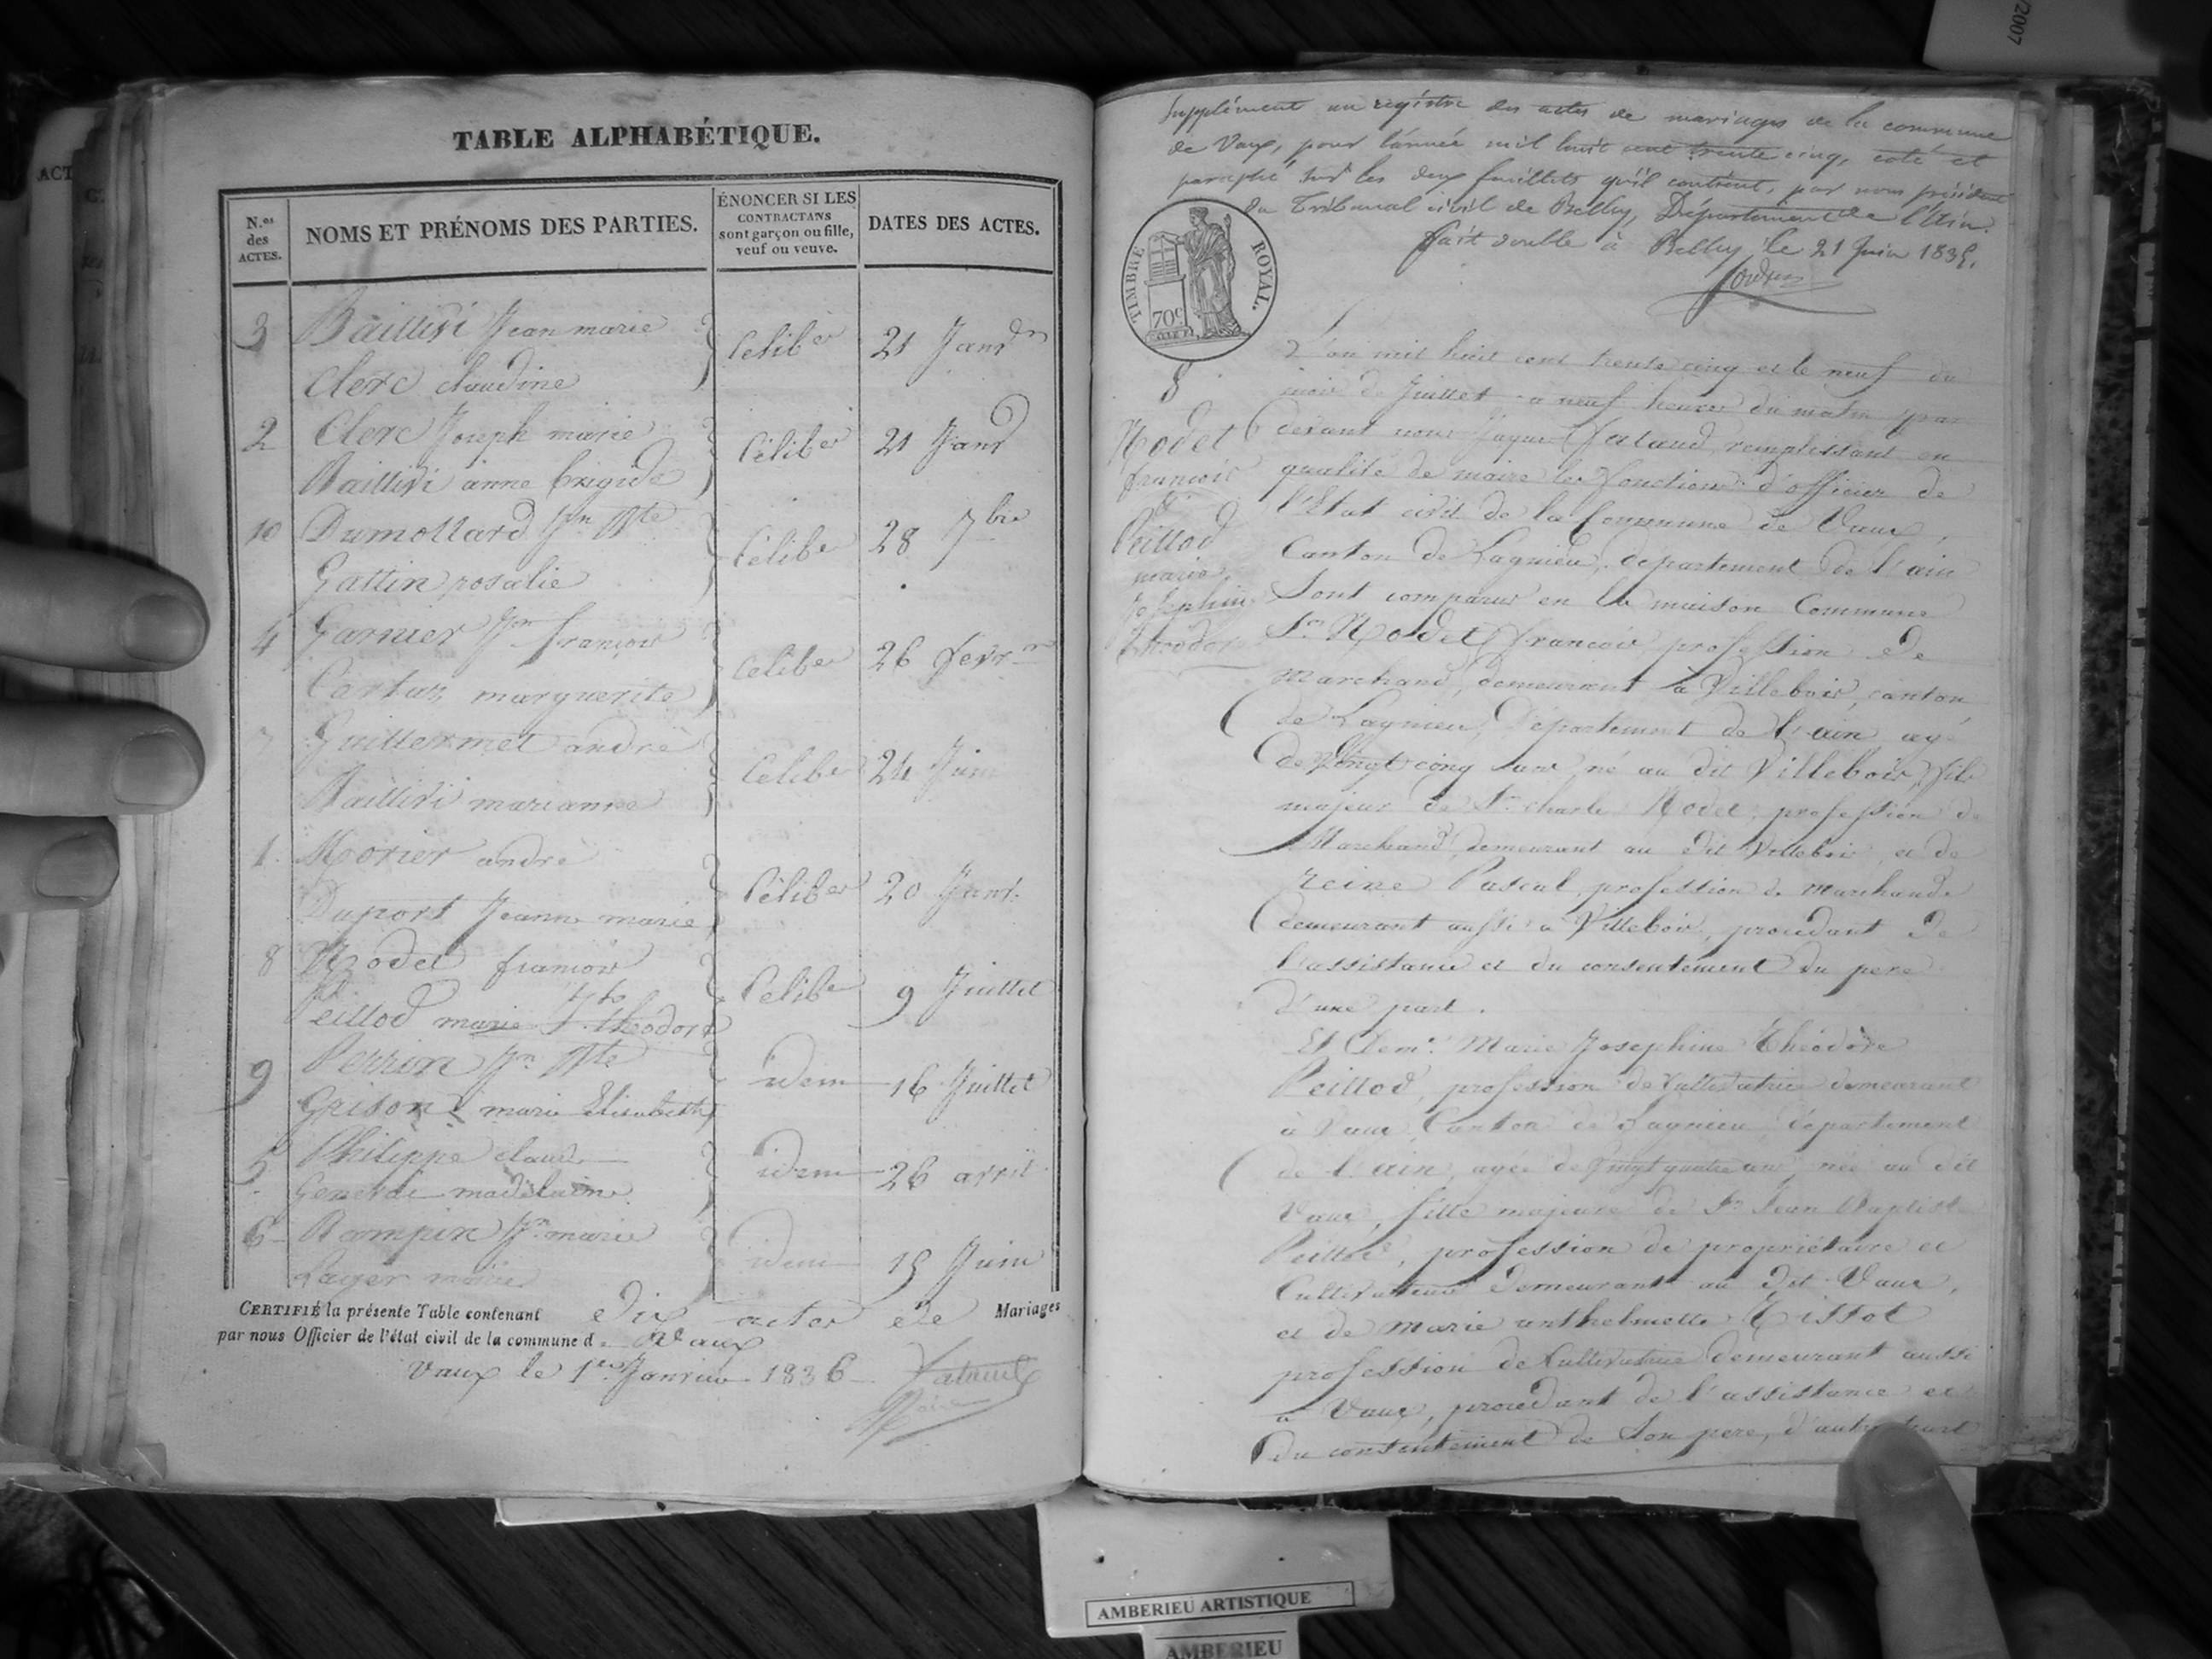 TABLE ALPHABÉTIQUE.
N.os des ACTES.
NOMS ET PRÉNOMS DES PARTIES.
ÉNONCER SI LES CONTRACTANS sont garçon ou fille, veuf ou veuve.
DATES DES ACTES.
3 Baillivi Jean marie
Celib.er 21 Janv.
Clerc claudine
2 Clerc Joseph marie
Celiber 21 Janv
Baillivi anne brigide
10 Dumollard Jn Bte
Celiber 28 7bre
Gattin rosalie
4 Garnier Jn françois
Celiber 26 fevr
Cortaz marguerite
7 Guillermet andré
Celiber 24 Juin
Baillivi marianne
1. Morier andré
Celiber 20 Janv.
Duport Jeanne marie
8 Nodet francois
Celiber 9 Juillet
Peillod marie Jh theodore
9 Perrion Jn Bte
idem 16 Juillet
Grison marie Elisabeth
5 Philippe claude
idem 26 avril
madelaine
6 Rampin Jn marie
idem 15 Juin
Layer marie
CERTIFIÉ la présente Table contenant dix actes de Mariages
par nous Officier de l'état civil de la commune de Vaux
Vaux le 1er Janvier 1836
Supplément au registre des actes de mariages de la commune
de Vaux, pour l'année mil huit cent trente cinq, coté et
paraphé sur les deux feuillets qu'il contient, par nous président
du Tribunal civil de Belley, Département de l'Ain.
fait double à Belley le 21 Juin 1835.
TIMBRE ROYAL.
70c
8
Nodet
francois
&
Peillod
marie
Josephine
theodore
L'an mil huit cent trente cinq et le neuf du
mois de Juillet a neuf heures du matin par
devant nous Jaque remplissant en
qualité de maire les fonctions d'officier de
l'Etat civil de la Commune de Vaux,
Canton de Lagnieu, departement de l'ain
Sont comparus en la maison Commune
Sr Nodet francois profession de
Marchand, demeurant a Villebois, canton
de Lagnieu, Département de l'ain agé
de vingt cinq ans né au dit Villebois, fils
majeur de Sr charle Nodet, profession de
Marchand demeurant au dit Villebois, et de
reine Pascal profession de Marchande
demeurant aussi a Villebois, procedant de
l'assistance et du consentement du pere
d'une part.
Et Dem.e Marie Josephine Théodore
Peillod, profession de Cultivatrice demeurant
à Vaux, Canton de Lagnieu, département
de l'ain, agée de vingt quatre ans née au dit
Vaux, fille majeure de Sr Jean Baptiste
Peillod, profession de propriétaire et
Cultivateur demeurant au dit Vaux,
et de marie anthelmette Tissot
profession de Cultivatrice demeurant aussi
a Vaux, procedant de l'assistance et
du consentement de Son pere, d'autre part
/2007
AMBERIEU ARTISTIQUE
AMBERIEU